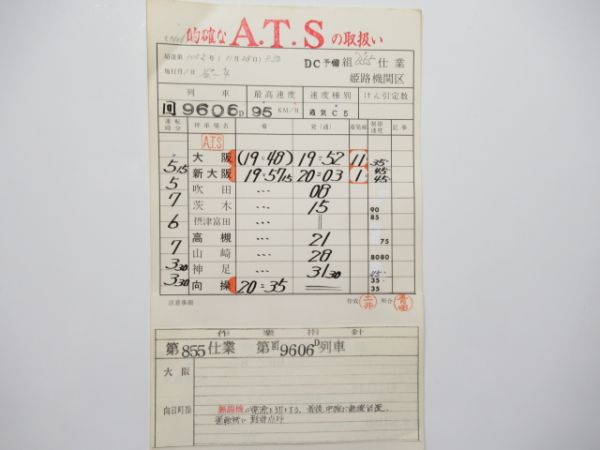 的確な A.T.S の取扱い
DC予備組 855 仕業
姫路機関区
施行月/日
列車 最高速度 速度種別 けん引定数
回9606D 95 KM/H 通気C5
運転時分 停車場名 着 発(通) 着発線 制限速度 記事
A.T.S
大阪 (19=48) 19=52 11 35
5 15 新大阪 19=57 15 20=03 1 45 45
5 吹田 … 08
7 茨木 … 15 90 85
摂津富田 ‖
6 高槻 … 21 75
7 山崎 … 28 80 80
3 30 神足 … 31 30 45 35
3 30 向操 20=35 35
注意事項 作成 照合
作業指針
第855仕業 第回9606D列車
大阪
向日町操